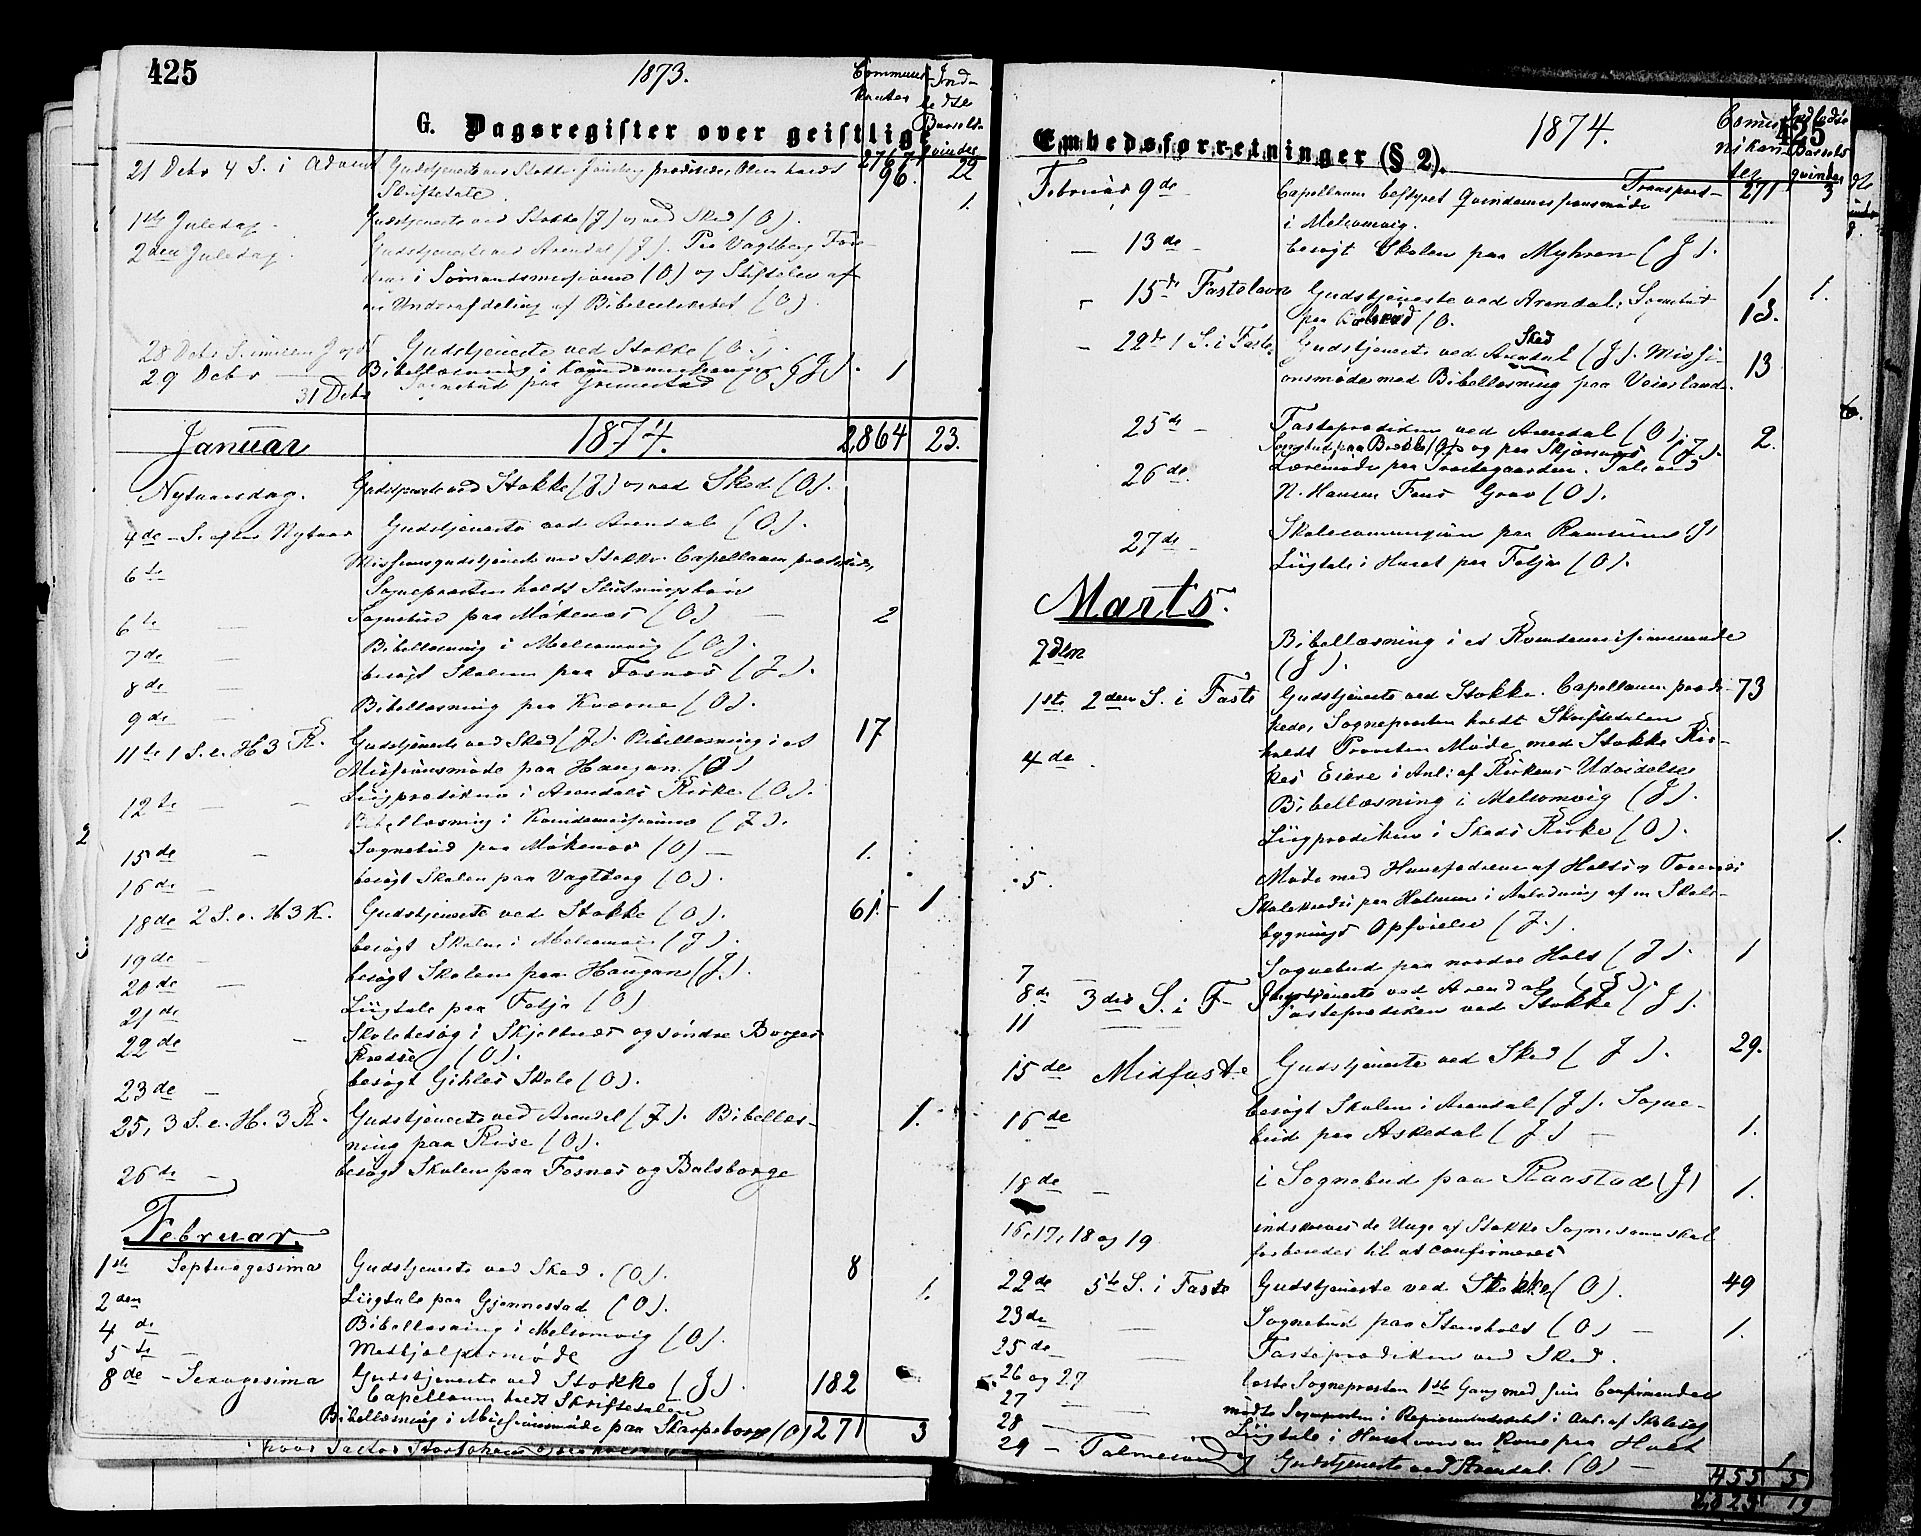 425
1873.
Communi- Ind-
kanter ledte
Barsels
qvinder
G. Dagsregister over geistlige
21 Decbr 4 S. i Advent Gudstjeneste ved Stokke holdt 2767 22
Skriftetale. 96. 1.
1ste Juledag. Gudstjeneste ved Stokke (J) og ved Skee (O).
2den Juledag. Gudstjeneste ved Arendal (J). Paa Vagtberg Fore-
drag i Sømandsmissionen (O) og Stiftelse af
en Underafdeling af Bibelselskabet (O)
28 Decbr S. imellem J og Gudstjeneste ved Stokke (O).
29 Decbr Bibellæsning i Kvindemissionen
31 Decbr Sognebud paa Grimestad (O & J). 1
Januar 1874. 2,864 23.
Nytaarsdag. Gudstjeneste ved Stokke (J) og ved Skee (O).
4de - S. efter Nytaar Gudstjeneste ved Arendal (O).
6te Missionsgudstjeneste ved Stokke. Capellanen prædikede,
Sognepræsten holdt Slutningsbøn
6te — Sognebud paa Møkenæs (O) — 2
7de — Bibellæsning i Melsomvig (O).
8de — besøgt Skolen paa Fosnæs (J).
9de — Bibellæsning paa Kværne (O).
11te 1 S. e. H 3 K. Gudstjeneste ved Skee (J). Bibellæsning i et 17
Missionsmøde paa Haugan (O)
12te — Liigprædiken i Arendals Kirke (O).
Bibellæsning i Kvindemissionen (J).
15de — Sognebud paa Møkenæs (O) — 1.
16de — besøgt Skolen paa Vagtberg (O).
18de 2 S. e. H 3 K. Gudstjeneste ved Stokke (O). 61. 1
19de — besøgt Skolen i Melsomvig (J).
20de — besøgt Skolen paa Haugan (J).
21de Liigtale paa Folja (O)
22de — Skolebesøg i Skjelbnæs og søndre Borges
Kredse (O).
23de — besøgt Gihles Skole (O).
25, 3 S. e. H. 3 K. Gudstjeneste ved Arendal (J). Bibellæs- 1.
ning paa Rise (O).
26de — besøgt Skolen paa Fosnæs og Dalsborge
Februar.
1ste Septuagesima Gudstjeneste ved Skee. (O). 8
2den Liigtale paa Gjennestad (O). 1.
4de Bibellæsning i Melsomvig (O).
5te — Medhjælpermøde
8de - Sexagesima Gudstjeneste ved Stokke (J). 182
Capellanen holdt Skriftetalen
Bibellæsning i Missionsmøde paa Skarpeborge (O) 271 3
1874. 425
Embedsforretninger (§ 2).
Transport 271 3
Februar 9de Capellanen bestyret Qvindemissionsmøde
i Melsomvig.
— 13de besøgt Skolen paa Myhren (J).
15de Fastelavn Gudstjeneste ved Arendal. Sognebud 1 1.
paa (O. 13.
— 22de 1 S. i Faste Gudstjeneste ved Arendal Skee (J). Missi- 13
onsmøde med Bibellæsning paa Veierland.
25de - Fasteprædiken ved Arendal (O).
Sognebud paa Brekke (O) og paa Skjærsnæs (J). 2.
26de Læremøde paa Prestegaarden. Tale ved
N. Hansen Fens Grav (O).
27de - Skolecommission paa Ramsum (J)
Liigtale i Huset paa Folja (O).
Marts.
2den Bibellæsning i et Kvindemissionsmøde
(J).
1ste 2den S. i Faste Gudstjeneste ved Stokke. Capellanen prædi- 73
kede, Sognepræsten holdt Skriftetalen
4de holdt Provsten Møde med Stokke Kir-
kes Eiere i Anl: af Kirkens Udvidelse
Bibellæsning i Melsomvig (J).
Liigprædiken i Skees Kirke (O). 1.
5. Møde med Huusfædrene af Holts og
Skolekreds paa Holmen i Anledning af en Skole-
bygnings Opførelse (J).
7 — Sognebud paa nordre Holt (J). 1
8de 3die S. i F. Gudstjeneste ved Arendal (O).
11 — Fasteprædiken ved Stokke (J).
15de Midfaste Gudstjeneste ved Skee (J). 29.
16de besøgt Skolen i Arendal (J). Sogne-
bud paa Askedal (J) — 1.
18de — i Sognebud paa Raastad (J) 1.
16, 17, 18 og 19 indskreves de Unge af Stokke Sogn som skal
forberedes til at confirmeres
22de 5te S. i Faste Gudstjeneste ved Stokke (O). 49
23de — Sognebud paa Stensholt (O) — 1.
25de — Fasteprædiken ved Skee.
26 og 27 læste Sognepræsten 1ste Gang med sine Confirmander
27 — mødte Sognepræsten i Repræsentantskabet i Anl: af Skolesag
28 — Liigtale i Huset over en Kone paa Holt
29 — Palmesøndag Gudstjeneste ved Arendal. (O) —
455 5
19